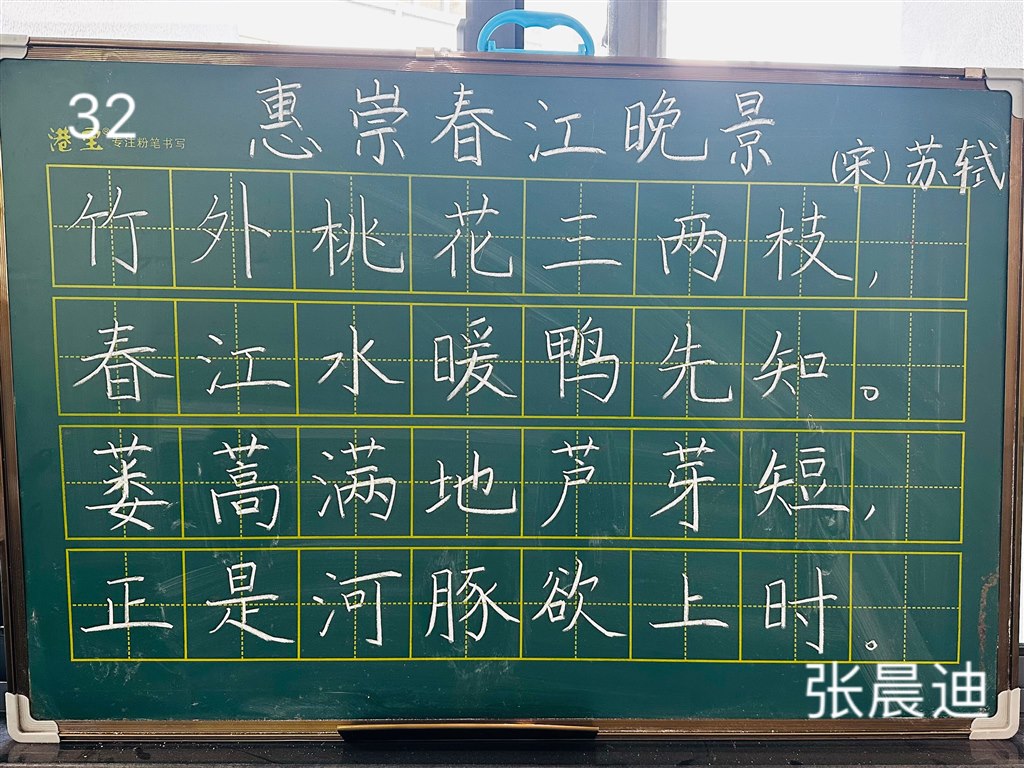 32
港宝® 专注粉笔书写
惠崇春江晚景
(宋)苏轼
竹外桃花三两枝,
春江水暖鸭先知。
蒌蒿满地芦芽短,
正是河豚欲上时。
张晨迪